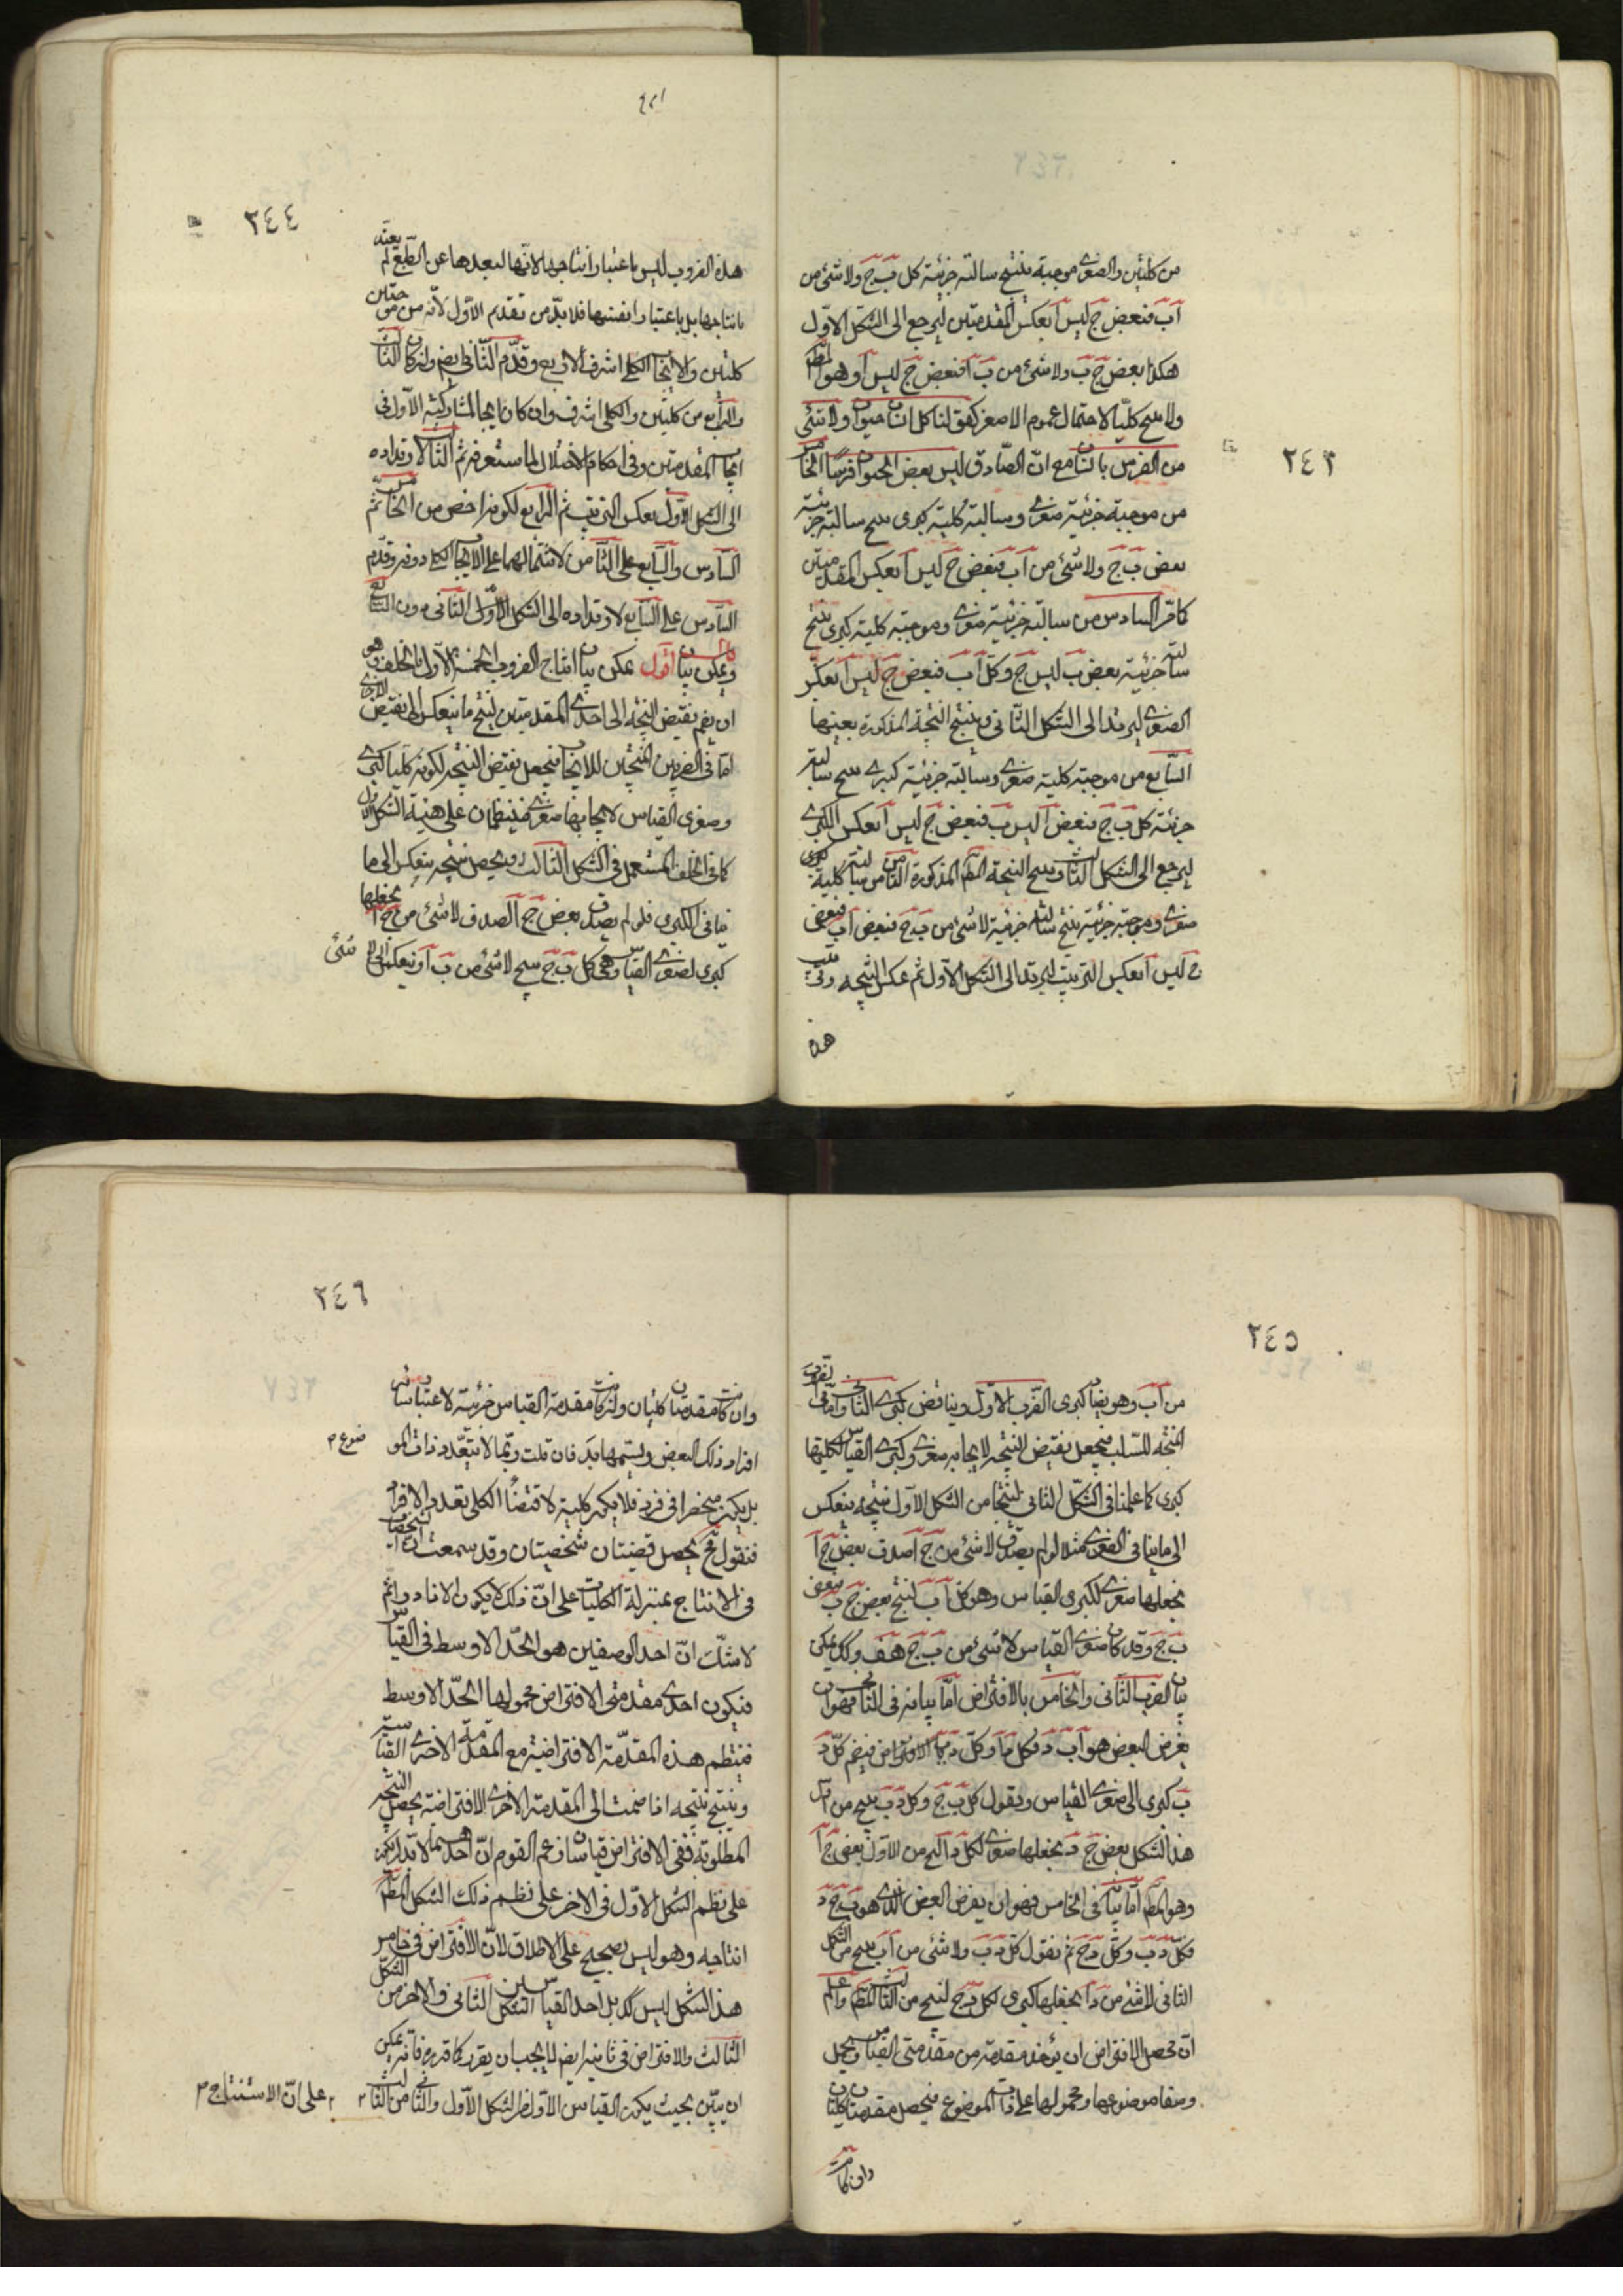 ٢٤٣
من كليتين والصغرى موجبة ينتج سالبة جزئية كل ب ج ولا شئ من
آ ب فبعض ج ليس آ بعكس المقدمتين ليرجع الى الشكل الاول
هكذا بعض ج ب ولا شئ من ب آ فبعض ج ليس آ وهو المط
ولا ينتج كليّا لاحتمال عموم الاصغر كقولنا كل انسان حيوان ولا شئ
من الفرس بانسان مع انّ الصّادق ليس بعض الحيوان فرسًا الخامس
من موجبة جزئية صغرى وسالبة كلية كبرى ينتج سالبة جزئية
بعض ب ج ولا شئ من آ ب فبعض ج ليس آ بعكس المقدمتين
كما مرّ السادس من سالبة جزئية صغرى وموجبة كلية كبرى ينتج
سالبة جزئية بعض ب ليس ج وكل آ ب فبعض ج ليس آ بعكس
الصغرى ليرتد الى الشكل الثانى وينتج النتيجة المذكورة بعينها
السّابع من موجبة كلية صغرى وسالبة جزئية كبرى ينتج سالبة
جزئية كل ب ج فبعض آ ليس ب فبعض ج ليس آ بعكس الكبرى
ليرجع الى الشكل الثالث وينتج النتيجة المذكورة الثامن من سالبة كلية
صغرى وموجبة جزئية كبرى ينتج سالبة جزئية لا شئ من ب ج فبعض آ ب فبعض
ج ليس آ بعكس الترتيب ليرتد الى الشكل الاول ثم عكس النتيجة وترتيب
هذه
٢٤٤
هذه الضروب ليس باعتبار انتاجها لانّها لبعدها عن الطّبع لم يعتدّ
بانتاجها بل باعتبار انفسها فلا بدّ من تقدم الاوّل لانّه من موجبتين
كليتين والايجاب الكلى اشرف الاربع وقدّم الثّانى ايض وان كان الثالث
والرّابع من كليتين والكلى اشرف وان كان ايجابا لمشاركته الاوّل فى
ايجاب المقدمتين وفى احكام الاختلاط كما ستعرفه ثم الثالث لارتداده
الى الشكل الاوّل بعكس الترتيب ثم الرابع لكونه اخص من الخامس ثم
السّادس والسّابع على الثّامن لاشتمالهما على الايجاب الكلى دونه وقدّم
السّادس على السّابع لارتداده الى الشكل الثّانى دون السّابع
ويمكن بيان اقول يمكن بيان انتاج الضروب الخمسة الاول بالخلف وهو
ان يضم نقيض النتيجة الى احدى المقدمتين لينتج ما ينعكس الى نقيض الاخرى
امّا فى الضربين المنتجين للايجاب فيجعل نقيض النتيجة لكونه كليا كبرى
وصغرى القياس لايجابها صغرى فينتظمان على هيئة الشكل الاول
كما فى الخلف المستعمل فى الشكل الثالث ويحصل نتيجة ينعكس الى ما
ينافى الكبرى فلو لم يصدق بعض ج آ لصدق لا شئ من ج آ يجعلها
كبرى لصغرى القياس وهى كل ب ج ينتج لا شئ من ب آ وينعكس الى لا شئ
٢٤٥
من آ ب وهو يضاد كبرى الضرب الاوّل ويناقض كبرى الثانى وامّا فى الضروب
المنتجة للسّلب فيجعل نقيض النتيجة لايجابه صغرى وكبرى القياس لكليتها
كبرى كما علمنا فى الشكل الثانى لينتجا من الشكل الاوّل نتيجة ينعكس
الى ما ينافى الصغرى مثلا لو لم يصدق لا شئ من ج آ صدق بعض ج آ
يجعلها صغرى لكبرى القياس وهو كل آ ب لينتج بعض ج ب فبعض
ب ج وقد كان صغرى القياس لا شئ من ب ج هف وكذلك يمكن
بيان الضرب الثانى والخامس بالافتراض امّا بيانه فى الثانى فهو ان
يفرض البعض هو آ ب د فكل د آ وكل د ب
ب كبرى الى صغرى القياس ونقول كل ب ج وكل د ب ينتج من
هذا الشكل بعض ج د يجعلها صغرى لكل د آ لينتج من الاوّل بعض ج آ
وهو المط امّا بيانه فى الخامس فهو ان يفرض البعض الذى هو ب ج د
فكل د ب وكل د ج ثم نقول كل د ب ولا شئ من آ ب ينتج من الشكل
الثانى لا شئ من د آ يجعلها كبرى لكل د ج لينتج من الثالث المط واعلم
انّ محصل الافتراض ان يؤخذ مقدمة من مقدمتى القياس ويحمل
وصفا موضوعها ومحمولها على ذات الموضوع فيحصل مقدمتان كليتان
وان كانت
٢٤٦
وان كانت مقدمتا كليتان وان كانت مقدمة القياس جزئية لاعتبار سائر
افراد ذلك البعض وتسميها بد فان قلت ربّما لا يتعدّد ذات الموضوع
بل يكون منحصرا فى فرد فلا يكون كلية لاقتضاء الكلى تعدد الافراد
فنقول ح يحصل قضيتان شخصيتان وقد سمعت ان الشخصيات
فى الانتاج بمنزلة الكليات على انّ ذلك لا يكون الا نادرا ثم
لا شكّ انّ احد الوصفين هو الحدّ الاوسط فى القياس
فيكون احدى مقدمتى الافتراض محمولها الحدّ الاوسط
فينتظم هذه المقدّمة الافتراضية مع المقدمة الاخرى القياسية
وينتج نتيجة اذا ضمت الى المقدمة الاخرى الافتراضية يحصل النتيجة
المطلوبة ففى الافتراض قياسان وزعم القوم انّ احدهما لا بد ان يكون
على نظم الشكل الاوّل والاخر على نظم ذلك الشكل المط
انتاجه وهو ليس بصحيح على الاطلاق لانّ الافتراض فى خامس
هذا الشكل ليس كذلك بل احد القياسين من الشكل الثانى والاخر من الشكل
الثالث والافتراض فى ثانيه ايضا لا يجب ان يقرر كما قرره فانّه يمكن
ان يبيّن بحيث يكون القياس الاوّل من الشكل الاوّل والثانى من الثالث
على انّ الاستنتاج